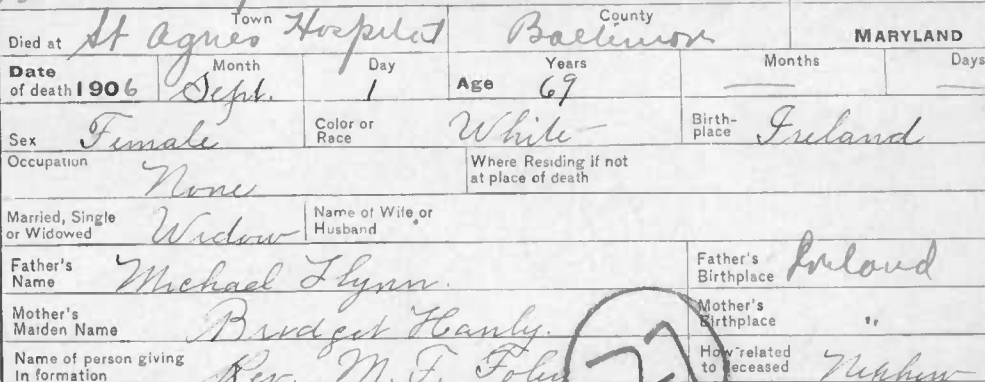 Died at St Agnes Hospital Town Baltimore County MARYLAND
Date of death 1906 Month Sept. Day 1 Age Years 69 Months — Days —
Sex Female Color or Race White Birth-place Ireland
Occupation None Where Residing if not at place of death
Married, Single or Widowed Widow Name of Wife or Husband
Father's Name Michael Flynn. Father's Birthplace Ireland
Mother's Maiden Name Bridget Hanly. Mother's Birthplace "
Name of person giving In formation Rev. M. F. Foley How related to deceased Nephew